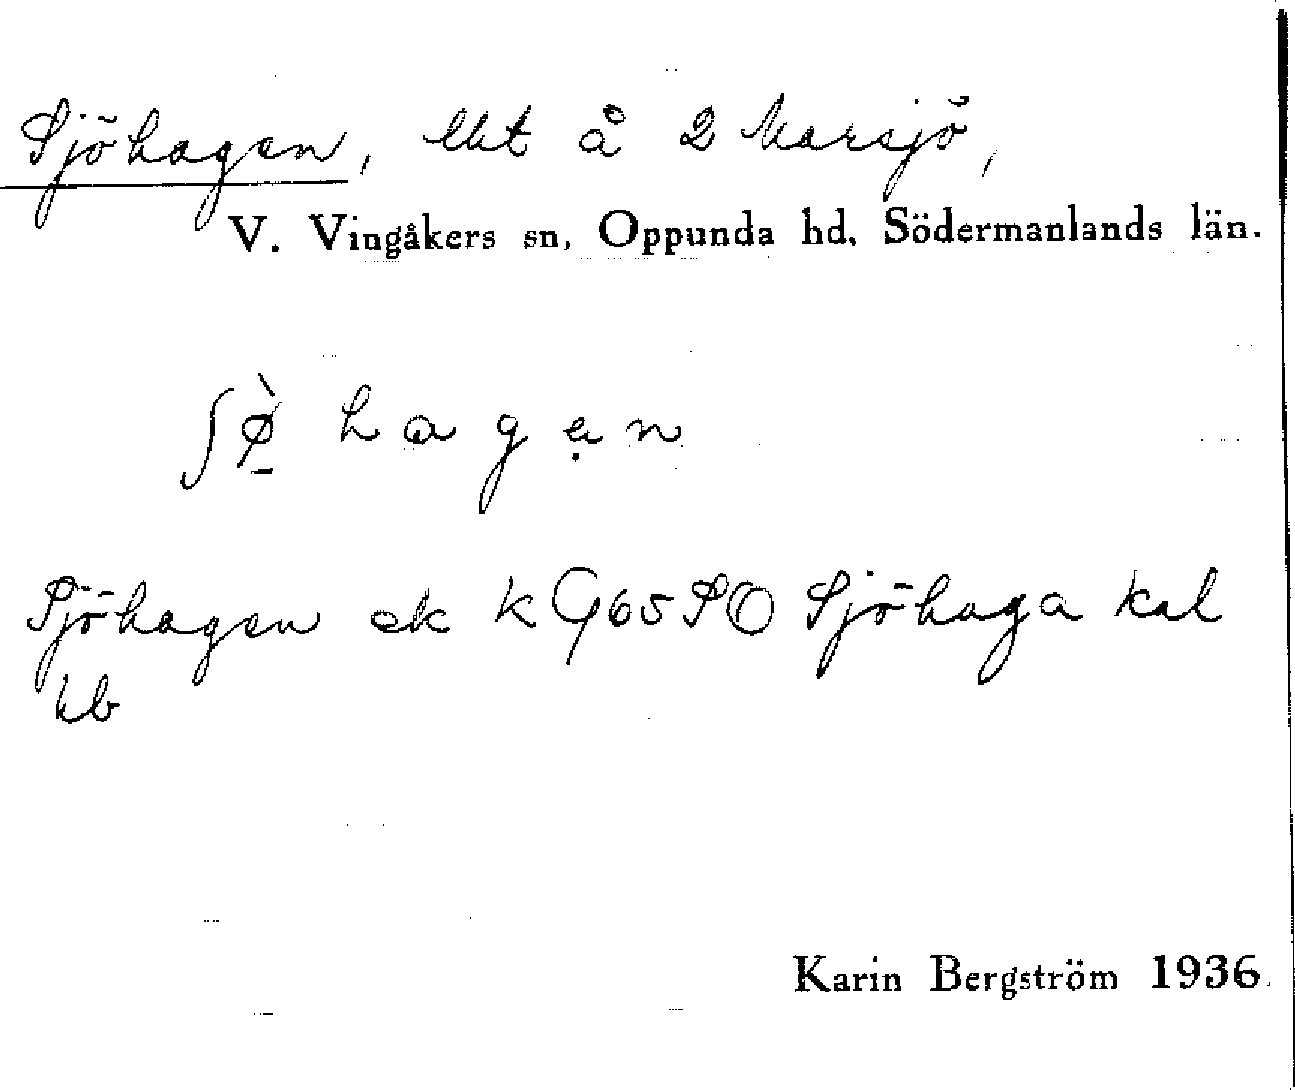 Sjöhagen, lht å 2 Marsjö,
V. Vingåkers sn, Oppunda hd, Södermanlands län.
ʃø̠̀ hagẹn
Sjöhagen ek k G65SO Sjöhaga kal
hb
Karin Bergström 1936.